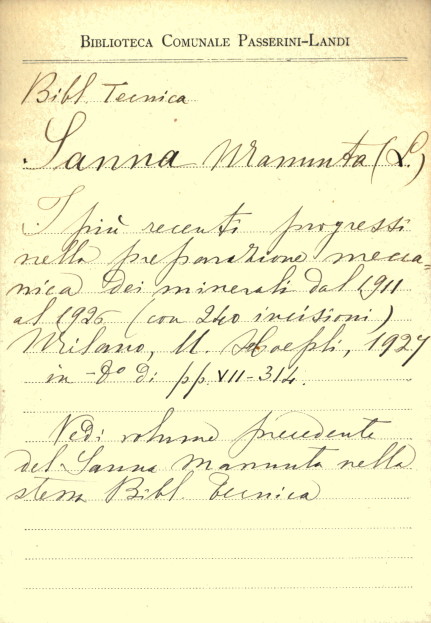 BIBLIOTECA COMUNALE PASSERINI-LANDI
Bibl. Tecnica
Sanna Manunta (L.)
I più recenti progressi
nella preparazione mecca-
nica dei minerali dal 1911
al 1926 (con 240 incisioni)
Milano, U. Hoepli, 1927
in -8° di pp. VII-314.
Vedi volume precedente
del Sanna Manunta nella
stessa Bibl. Tecnica